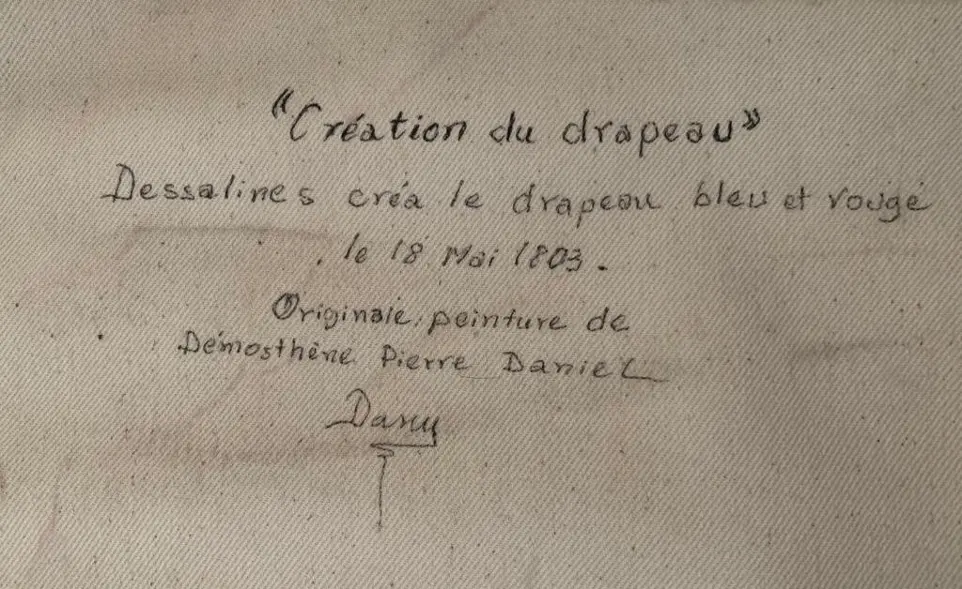 "Création du drapeau"
Dessalines créa le drapeau bleu et rouge
le 18 Mai 1803.
Originale peinture de
Démosthène Pierre Daniel
Dany